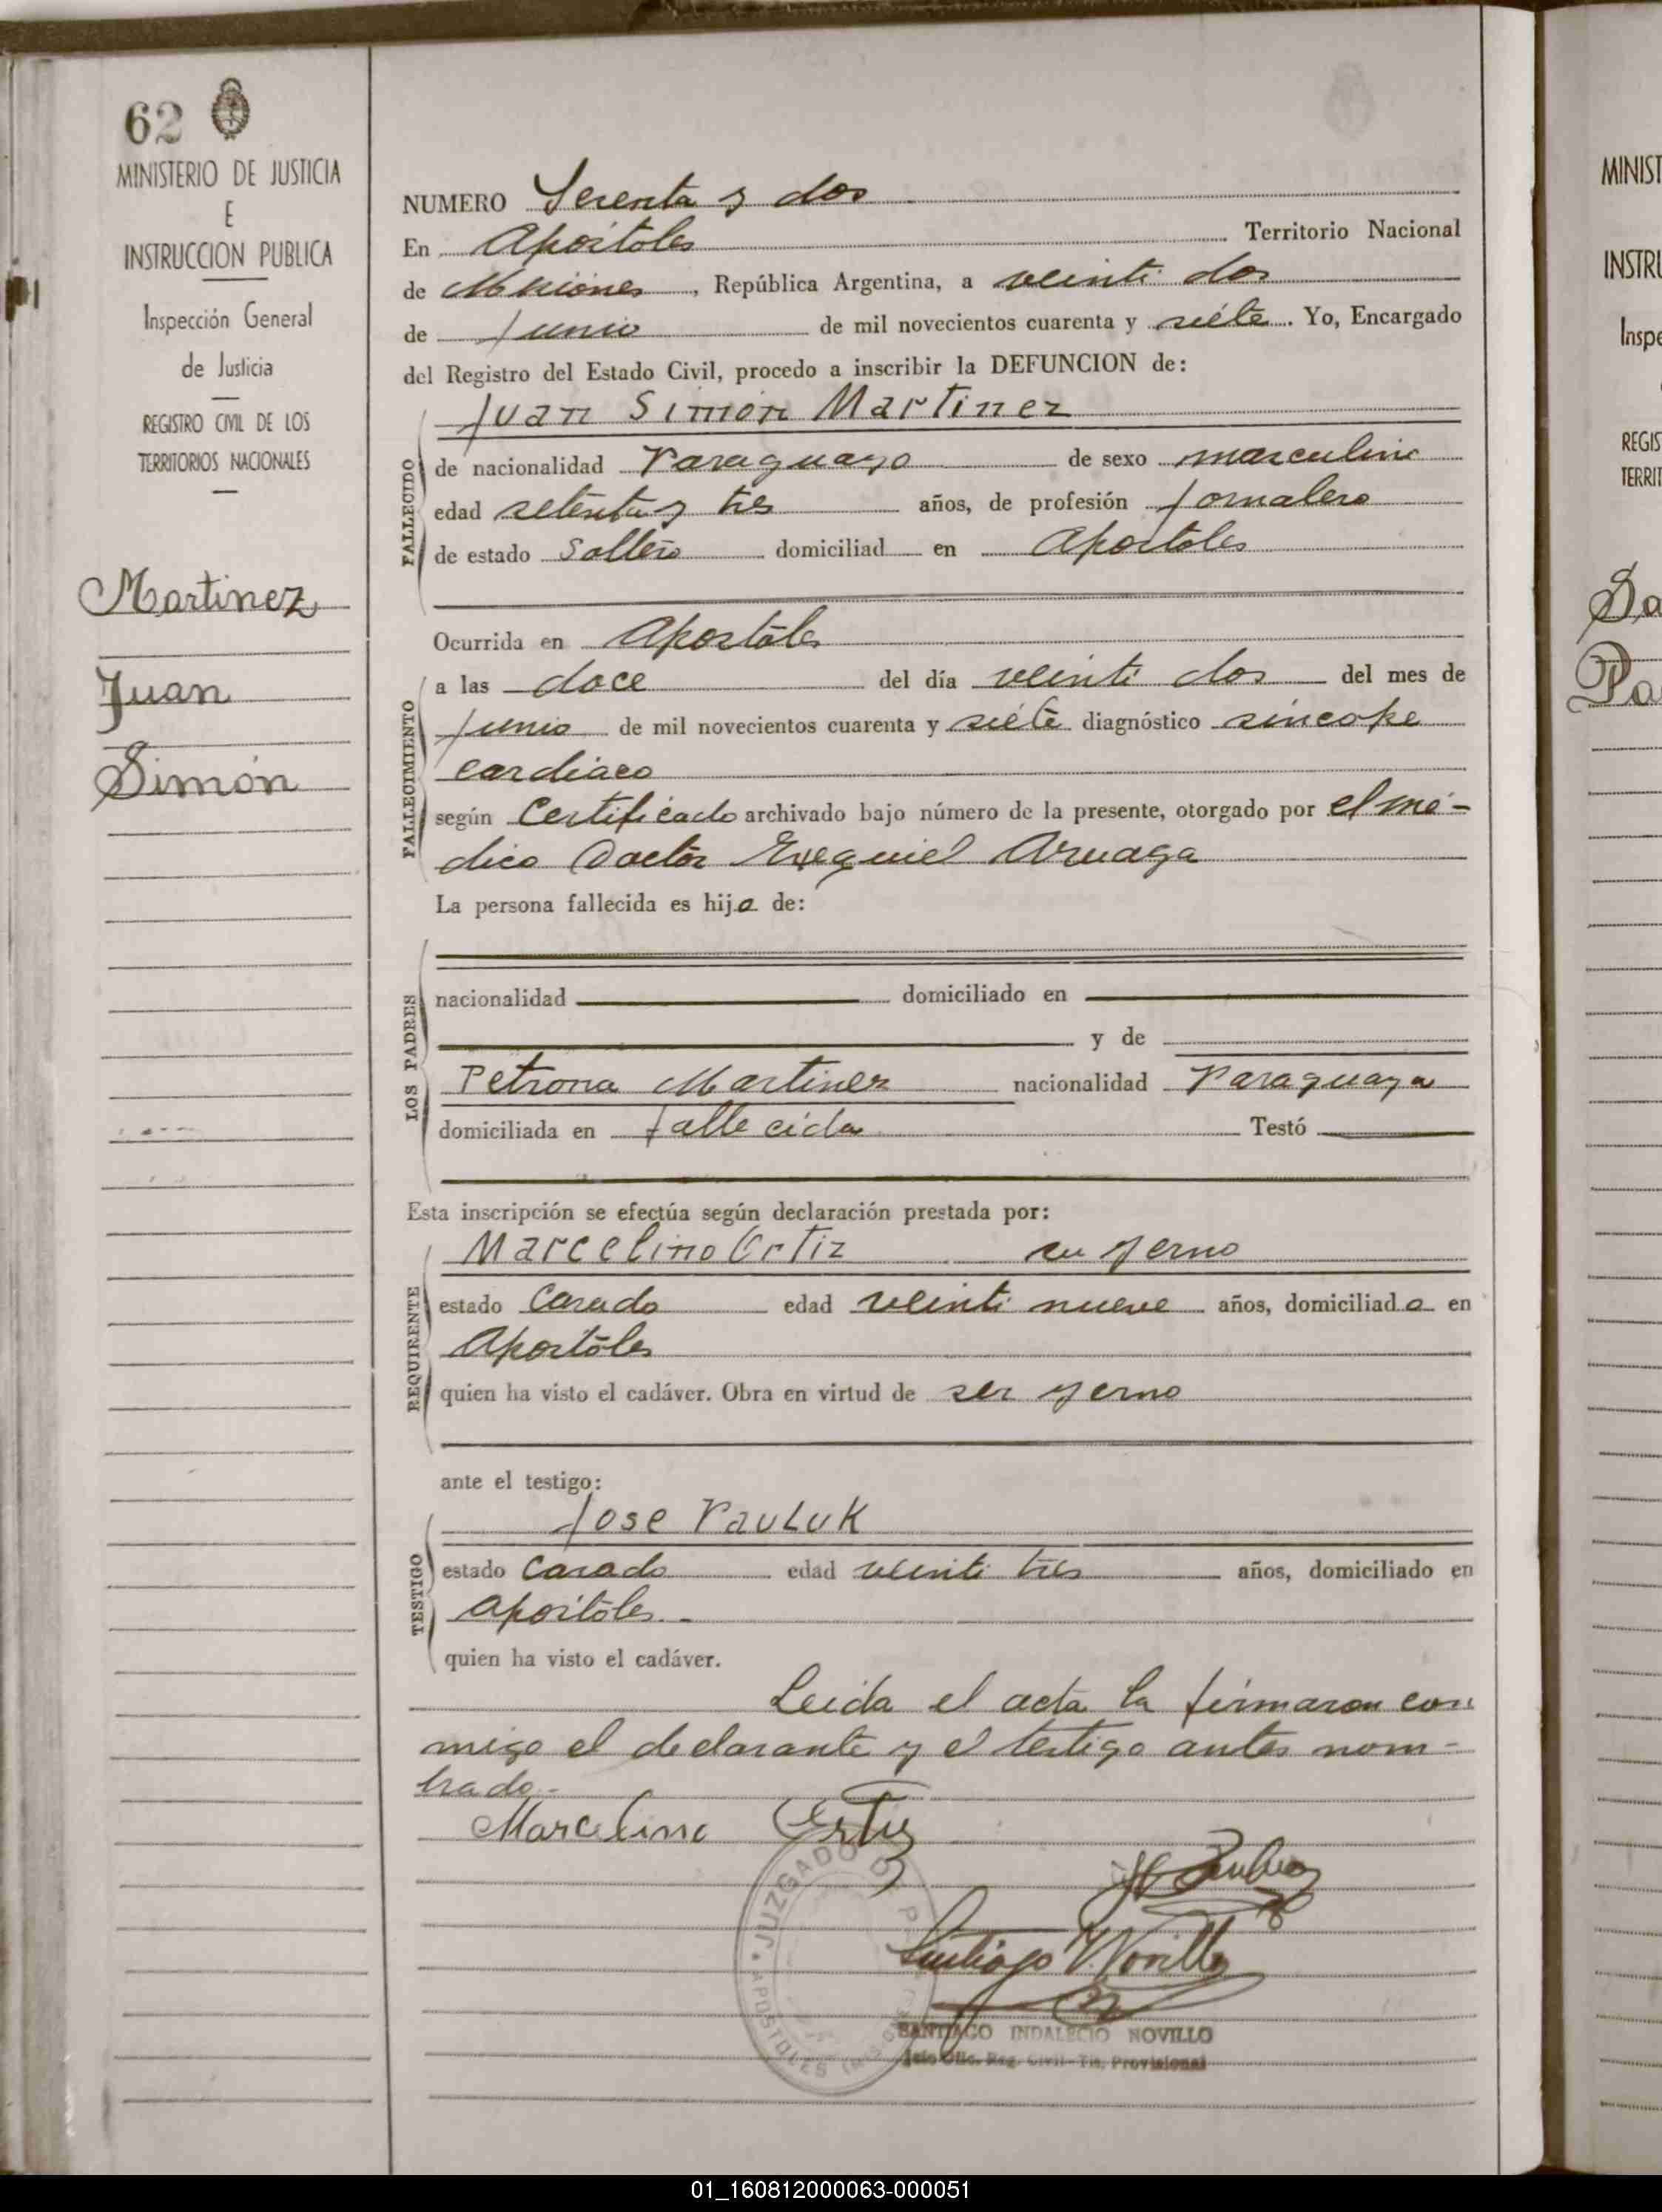 62
MINISTERIO DE JUSTICIA
E
INSTRUCCION PUBLICA
Inspección General
de Justicia
REGISTRO CIVIL DE LOS
TERRITORIOS NACIONALES
Martinez
Juan
Simón
NUMERO Sesenta y dos
En Apóstoles Territorio Nacional
de Misiones, República Argentina, a veinti dos
de Junio de mil novecientos cuarenta y siete. Yo, Encargado
del Registro del Estado Civil, procedo a inscribir la DEFUNCION de:
FALLECIDO
Juan Simón Martinez
de nacionalidad Paraguayo de sexo masculino
edad setenta y tres años, de profesión Jornalero
de estado Soltero domiciliad en Apostoles
FALLECIMIENTO
Ocurrida en Apostoles
a las doce del día veinti dos del mes de
Junio de mil novecientos cuarenta y siete diagnóstico sincope
cardiaco
según Certificado archivado bajo número de la presente, otorgado por el mé-
dico Doctor Exequiel
La persona fallecida es hijo de:
LOS PADRES
nacionalidad domiciliado en
y de
Petrona Martinez nacionalidad Paraguaya
domiciliada en fallecida Testó
Esta inscripción se efectúa según declaración prestada por:
REQUIRENTE
Marcelino Ortiz su yerno
estado Casado edad veinti nueve años, domiciliado en
Apostoles
quien ha visto el cadáver. Obra en virtud de ser yerno
ante el testigo:
TESTIGO
Jose Pauluk
estado Casado edad veinti tres años, domiciliado en
Apostoles.-
quien ha visto el cadáver.
Leida el acta la firmaron con
migo el declarante y el testigo antes nom-
brado.-
Marcelino Ortiz
JUZGADO DE P
APOSTOLES (MISIONES)
Santiago Novillo
SANTIAGO INDALECIO NOVILLO
Jefe Ofic. Reg. Civil-Tit. Provisional
MINIST
INSTRU
Inspe
REGIS
TERRIT
01_160812000063-000051